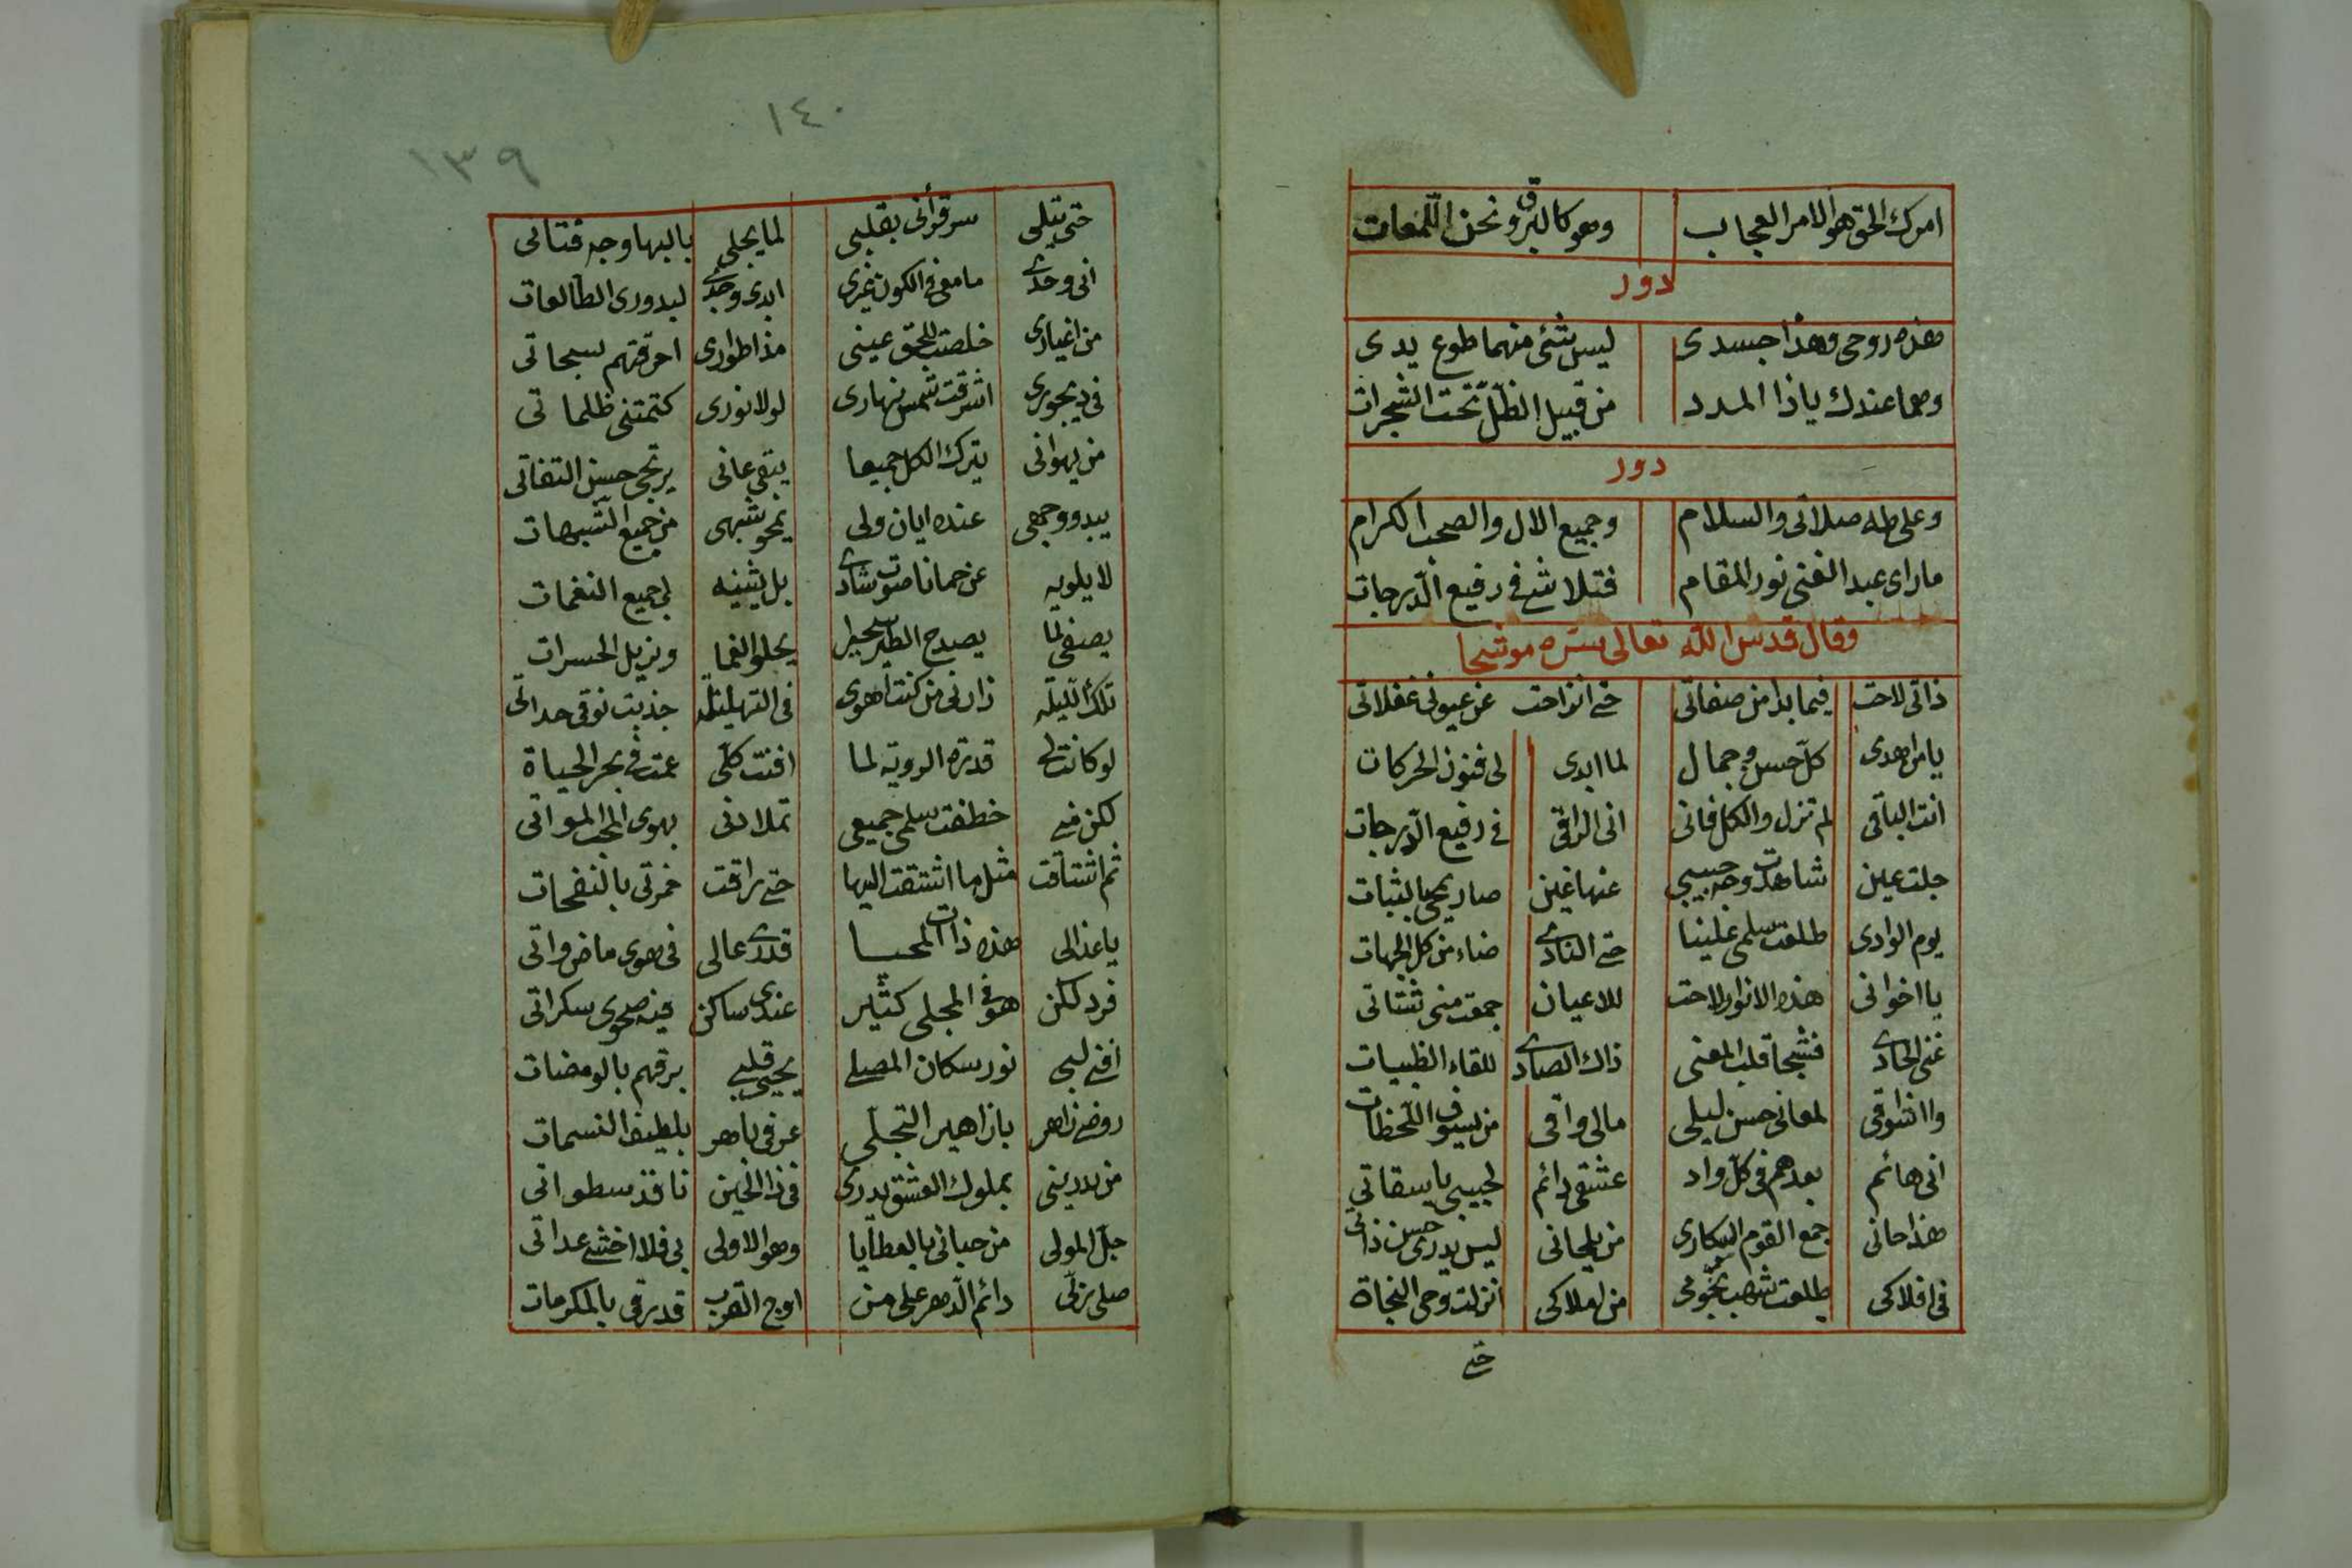 امرك الحق هو الامر العجاب وهو كالبرق ونحن اللمعات
دور
هذه روحى وهذا جسدى ليس شئ منهما طوع يدى
وهما عندك ياذا المدد من قبيل الظل تحت الشجرات
دور
وعلى طه صلاتى والسلام وجميع الال والصحب الكرام
ماراى عبد الغنى نور المقام فتلاشى فى رفيع الدرجات
وقال قدس الله تعالى سره موشحا
ذاتى لاحت فيما بدا من صفاتى حتى انزاحت عن عيونى غفلاتى
يا من اهدى كل حسن وجمال لما ابدى لى فنون الحركات
انت الباقى لم تزل والكل فانى انى الراقى فى رفيع الدرجات
جلت عين شاهدت وجه حبيبى عنها غين صار يحيى بالثبات
يوم الوادى طلعت سلمى علينا حتى النادى ضاء من كل الجهات
يا اخوانى هذه الانوار لاحت للاعيان جمعت منى شتاتى
غنى الحادى فشجا قلب المعنى ذاك الصادى للقاء الظبيات
وا اشواقى لمعانى حسن ليلى مالى واقى من سيوف اللحظات
انى هائم بعدهم فى كل واد عشقى دائم لحبيبى يا سقاتى
هذا حانى جمع القوم السكارى من يلحانى ليس يدرى حسن ذاتى
فى افلاكى طلعت شهب نجومى من املاكى انزلت وحى النجاة
حتى
١٤٠
١٣٩
حتى يتلى سر قرأنى بقلبى لما يجلى بالبها وجه فتاتى
انى وحدى ما معى فى الكون غيرى ابدى وجدى لبدورى الطالعات
من اغيارى خلصت للحق عينى مذ اطوارى احرقتهم سبحاتى
فى ديجورى اشرقت شمس نهارى لولا نورى كتمتنى ظلماتى
من يهوانى يترك الكل جميعا يبقى عانى يرتجى حسن التفاتى
يبدو وجهى عنده ايان ولى يمحو شبهى من جميع الشبهات
لا يلويه عن حمانا صوت شادى بل يثنيه لى جميع النغمات
يصغى لما يصدح الطير سحيرا يجلو الغما ويزيل الحسرات
تلك الليله زارنى من كنت اهوى فى التهليله جذبت نوقى حداتى
لو كانت لى قدرة الرؤية لما افنت كلى عمت فى بحر الحياة
لكن منى خطفت سلمى جميعى تملا دنى بهوى المحب المواتى
ثم اشتاقت مثل ما اشتقت اليها حتى راقت خمرتى بالنفحات
يا عذالى هذه ذات المحيا قدرى عالى فى هوى ماضى واتى
فرد لكن هو فى المجلى كثير عندى ساكن فيه صحوى سكراتى
افنى لبى نور سكان المصلى يحيى قلبى برقهم بالومضات
روض زاهر بازاهير التجلى عرفى باهر بلطيف النسمات
من يدرينى بملوك العشق يدرى فى ذا الحين نافذ سطواتى
جل المولى من حبانى بالعطايا وهو الاولى بى فلا اخشى عداتى
صلى ربى دائم الدهر على من اوج القرب قد رقى بالمكرمات